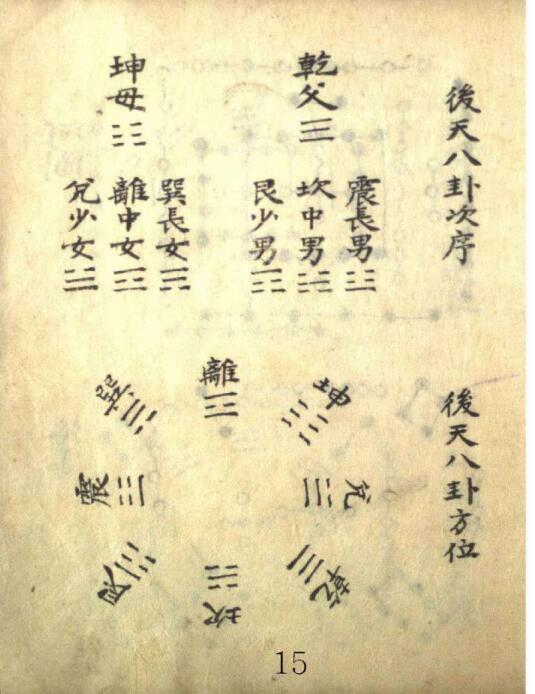 後天八卦次序
乾父
震長男
坎中男
艮少男
坤母
巽長女
離中女
兌少女
後天八卦方位
離
坤
兌
乾
坎
艮
震
巽
15